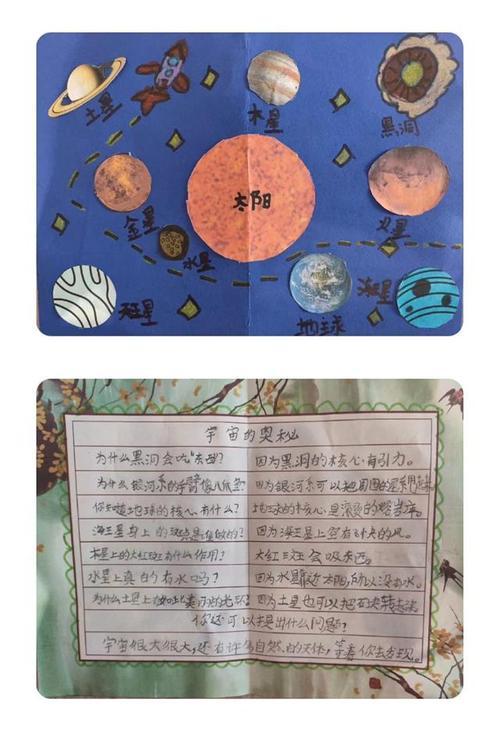 土星
木星
黑洞
太阳
金星
火星
水星
天王星
地球
海王星
宇宙的奥秘
为什么黑洞会吃"东西"? 因为黑洞的核心有引力。
为什么银河系的手臂像八爪鱼? 因为银河系可以把周围的星系
你知道地球的核心有什么? 地球的核心是滚烫的
海王星身上的斑点是 的? 因为海王星上空有 大的风。
木星上的大红斑有什么作用? 大红斑会吸东西。
水星上真的有水吗? 因为水星 太阳,所以没有水。
为什么土星上 光环? 因为土星也可以把石头转起来
你还可以提出什么问题?
宇宙很大很大,还有许多自然的天体,等着你去发现。